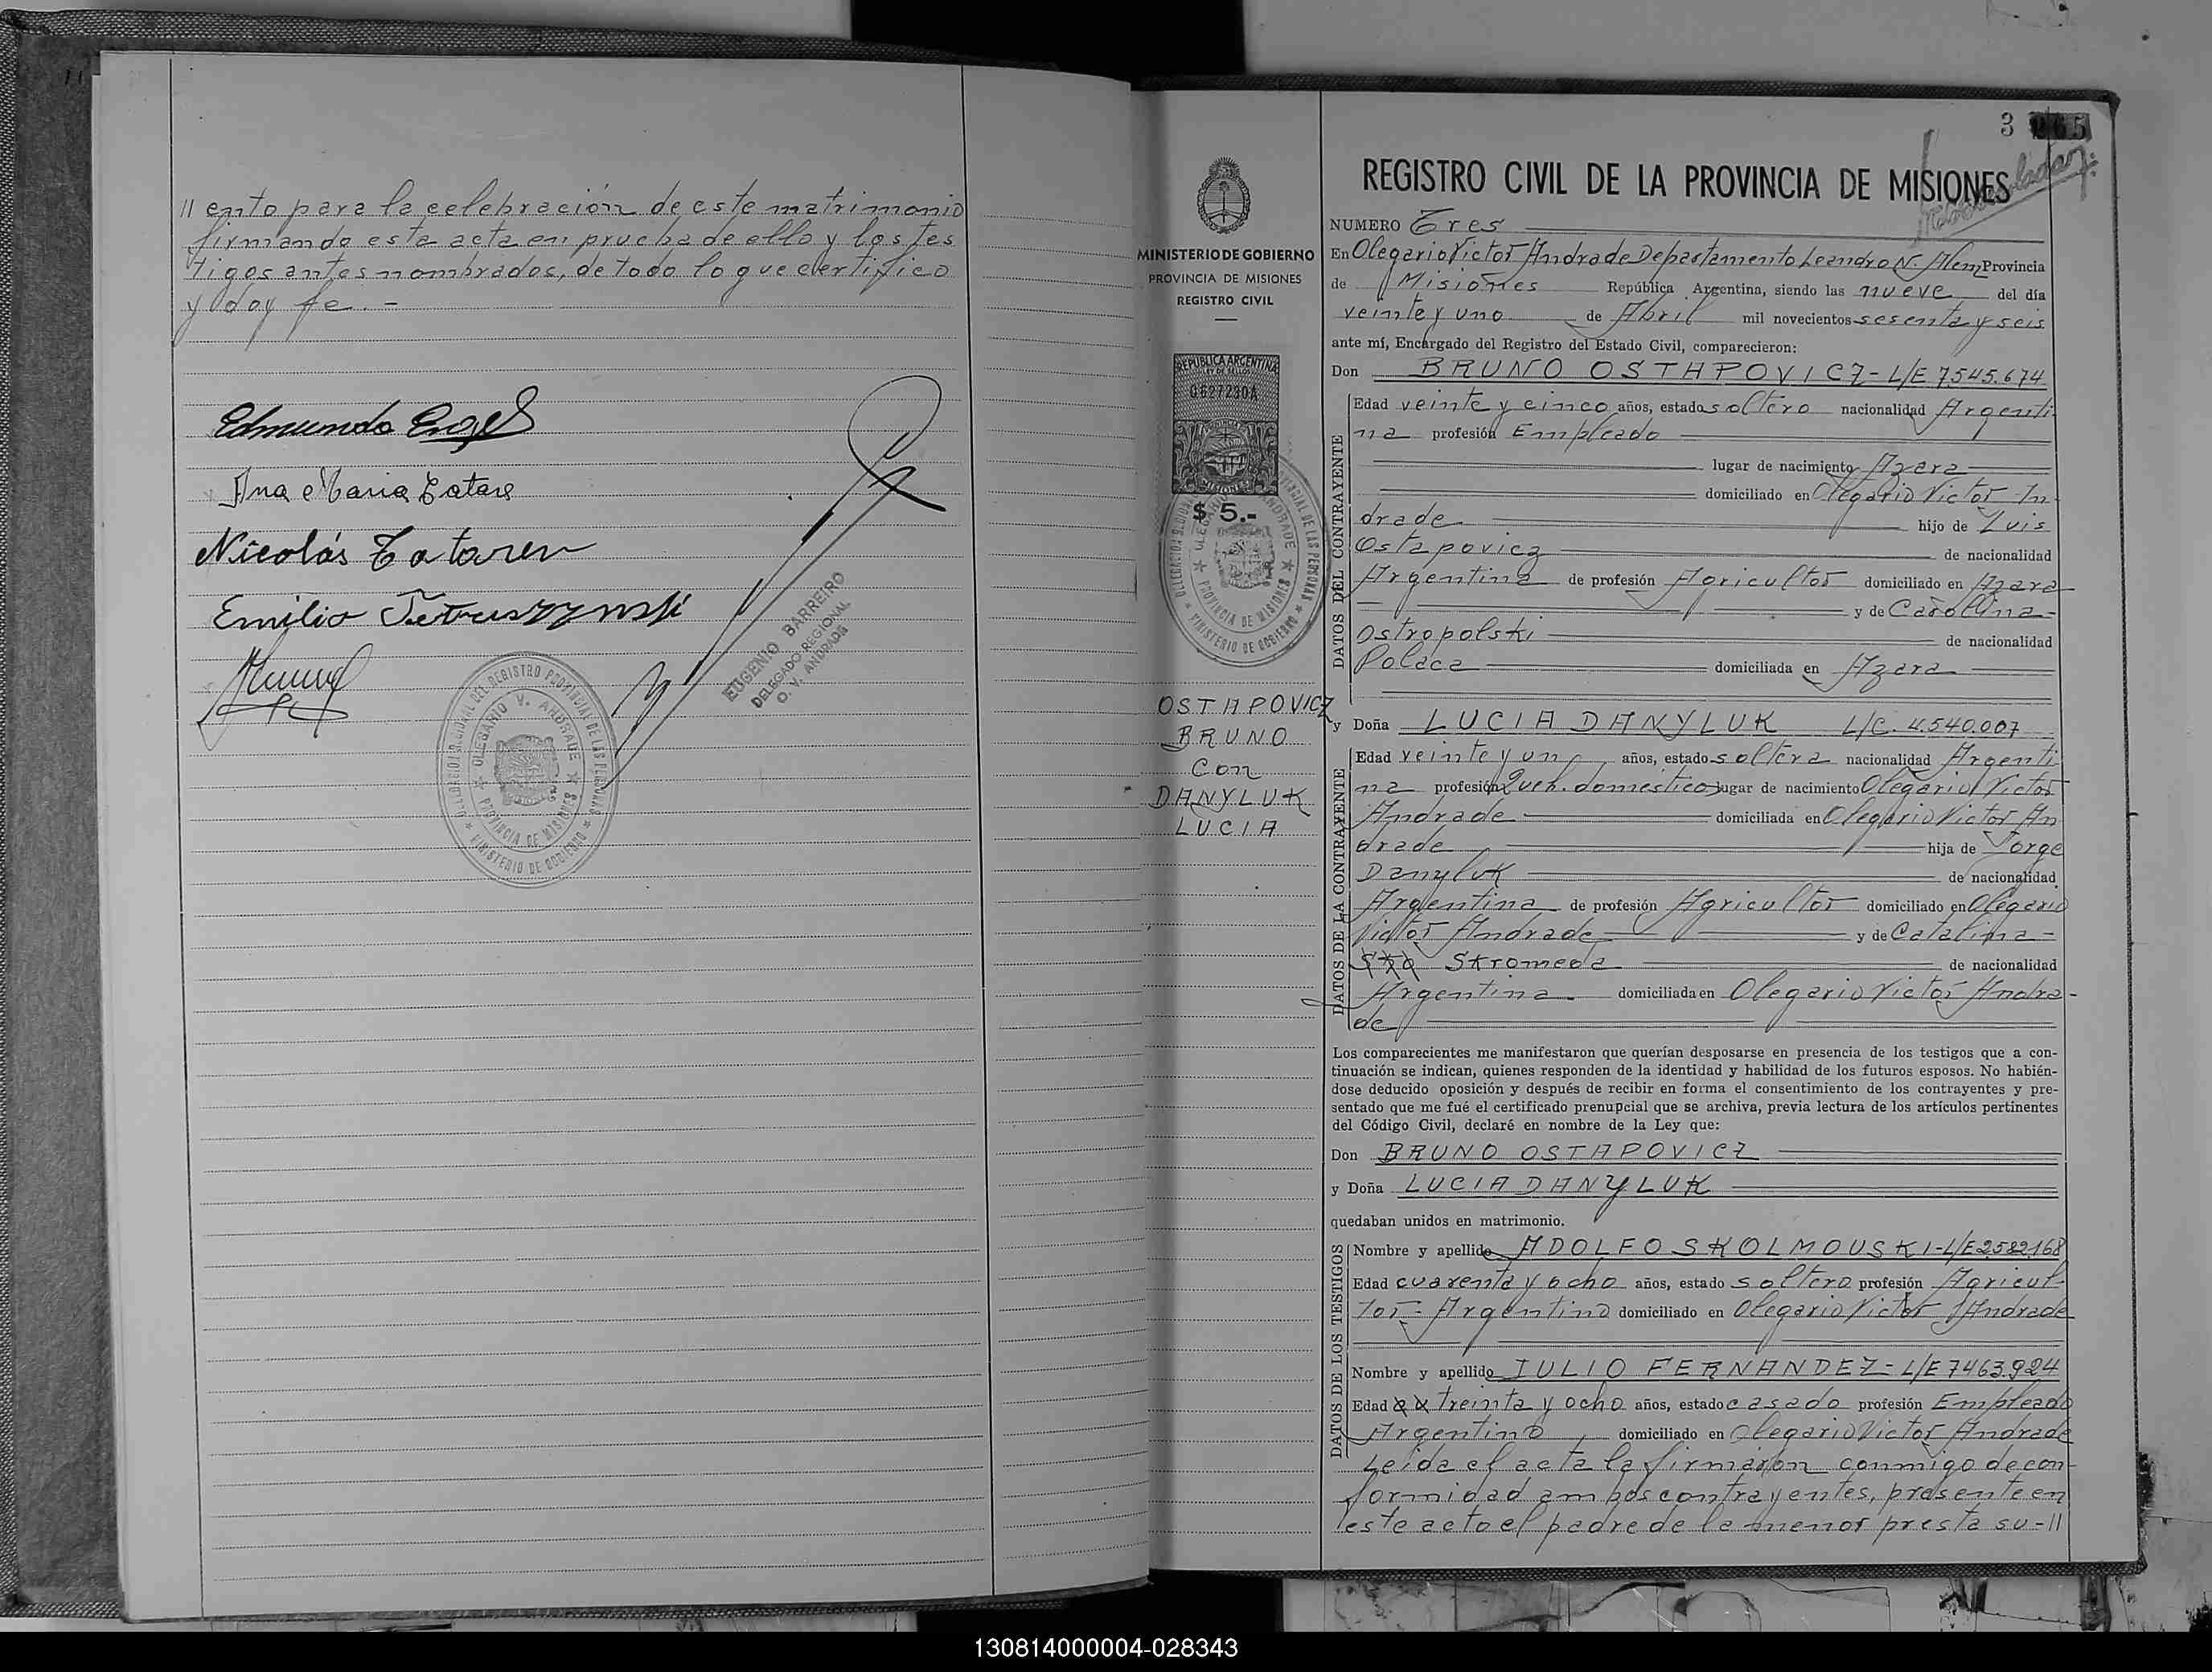 // ento para la celebración de este matrimonio
firmando esta acta en prueba de ello y los tes
tigos antes nombrados, de todo lo que certifico
y doy fe. -
Edmundo Engel
Ana Maria Tatare
Nicolás Tataren
Emilio
EUGENIO BARREIRO
DELEGADO REGIONAL
O. V. ANDRADE
DELEGACION REGIONAL DEL REGISTRO PROVINCIAL DE LAS PERSONAS
OLEGARIO V. ANDRADE
PROVINCIA DE MISIONES
MINISTERIO DE GOBIERNO
MINISTERIO DE GOBIERNO
PROVINCIA DE MISIONES
REGISTRO CIVIL
REPUBLICA ARGENTINA
LEY DE SELLOS
0627230A
MISIONES
$ 5.-
OSTAPOVICZ
BRUNO
con
DANYLUK
LUCIA
3 265
REGISTRO CIVIL DE LA PROVINCIA DE MISIONES
NUMERO Tres
En Olegario Victor Andrade Departamento Leandro N. Alem Provincia
de Misiones República Argentina, siendo las nueve del día
veinte y uno de Abril mil novecientos sesenta y seis
ante mí, Encargado del Registro del Estado Civil, comparecieron:
Don BRUNO OSTAPOVICZ - L/E 7545.674
DATOS DEL CONTRAYENTE
Edad veinte y cinco años, estado soltero nacionalidad Argenti-
na profesión Empleado
lugar de nacimiento Azara
domiciliado en Olegario Victor An
drade hijo de Luis
Ostapovicz de nacionalidad
Argentina de profesión Agricultor domiciliado en Azara
y de Carolina
Ostropolski de nacionalidad
Polaca domiciliada en Azara
y Doña LUCIA DANYLUK L/C. 4.540.007
DATOS DE LA CONTRAYENTE
Edad veinte y un años, estado soltera nacionalidad Argenti
na profesión Queh. domestico lugar de nacimiento Olegario Victor
Andrade domiciliada en Olegario Victor An
drade hija de Jorge
Danyluk de nacionalidad
Argentina de profesión Agricultor domiciliado en Olegario
Victor Andrade y de Catalina -
Stromeda de nacionalidad
Argentina domiciliada en Olegario Victor Andra-
de
Los comparecientes me manifestaron que querían desposarse en presencia de los testigos que a con-
tinuación se indican, quienes responden de la identidad y habilidad de los futuros esposos. No habién-
dose deducido oposición y después de recibir en forma el consentimiento de los contrayentes y pre-
sentado que me fué el certificado prenupcial que se archiva, previa lectura de los artículos pertinentes
del Código Civil, declaré en nombre de la Ley que:
Don BRUNO OSTAPOVICZ
y Doña LUCIA DANYLUK
quedaban unidos en matrimonio.
DATOS DE LOS TESTIGOS
Nombre y apellido ADOLFO SKOLMOUSKI - L/E 2.582.168
Edad cuarenta y ocho años, estado soltero profesión Agricul-
tor - Argentino domiciliado en Olegario Victor Andrade
Nombre y apellido JULIO FERNANDEZ - L/E 7463.924
Edad treinta y ocho años, estado casado profesión Empleado
Argentino domiciliado en Olegario Victor Andrade
Leida el acta la firmaron conmigo de con-
formidad ambos contrayentes, presente en
este acto el padre de la menor presta su - //
130814000004-028343